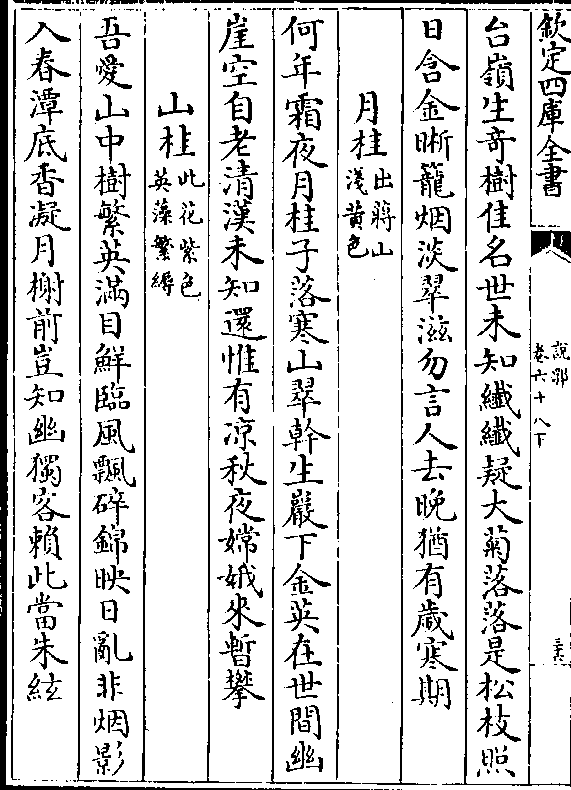 欽定四庫全書
說郛
卷六十八下
三六
台嶺生奇樹佳名世未知纖纖疑大菊落落是松枝照
日含金晰籠烟淡翠滋勿言人去晚猶有歲寒期
月桂出蔣山淺黄色
何年霜夜月桂子落寒山翠幹生巖下金英在世間幽
崖空自老清漢未知還惟有凉秋夜嫦娥來暫攀
山桂此花紫色英藻繁縟
吾愛山中樹繁英滿目鮮臨風飄碎錦映日亂非烟影
入春潭底香凝月榭前豈知幽獨客賴此當朱絃